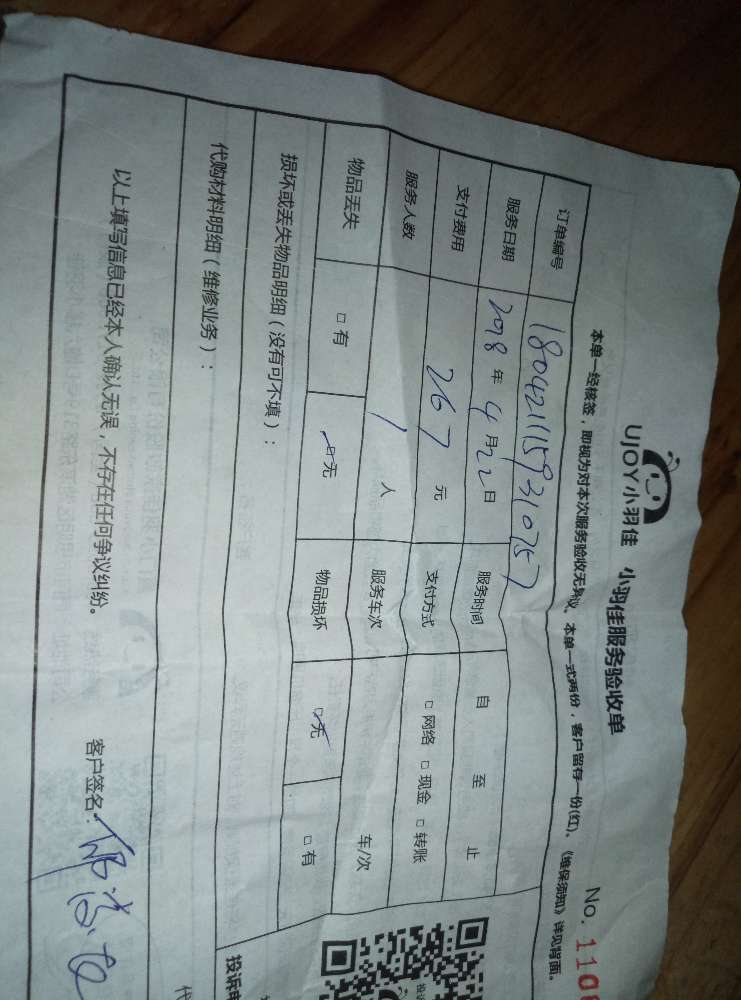 UJOY小羽佳 小羽佳服务验收单 No. 110
本单一经核签，即视为对本次服务验收无异议。本单一式两份，客户留存一份(红)。《维保须知》详见背面。
订单编号 1804211159310757
服务日期 2018年4月22日 服务时间 自 至 止
支付费用 267元 支付方式 □网络 □现金 □转账
服务人数 1人 服务车次 车/次
物品丢失 □有 ☑无 物品损坏 ☑无 □有
损坏或丢失物品明细（没有可不填）：
代购材料明细（维修业务）：
以上填写信息已经本人确认无误，不存在任何争议纠纷。 客户签名：
投诉